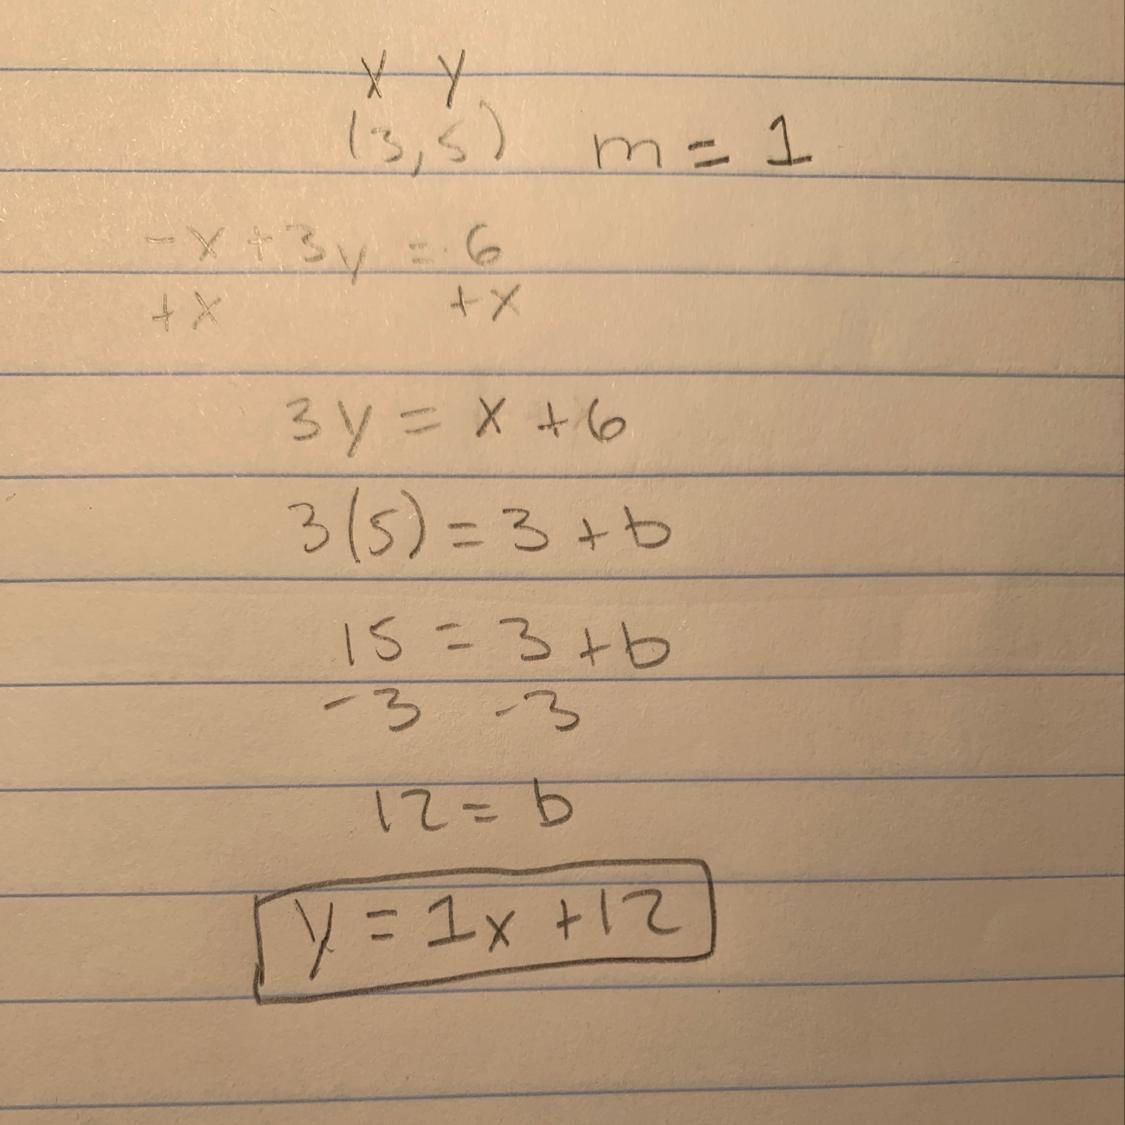 x y
(3,5) m = 1
-x + 3y = 6
+x +x
3y = x + 6
3(5) = 3 + b
15 = 3 + b
-3 -3
12 = b
y = 1x + 12